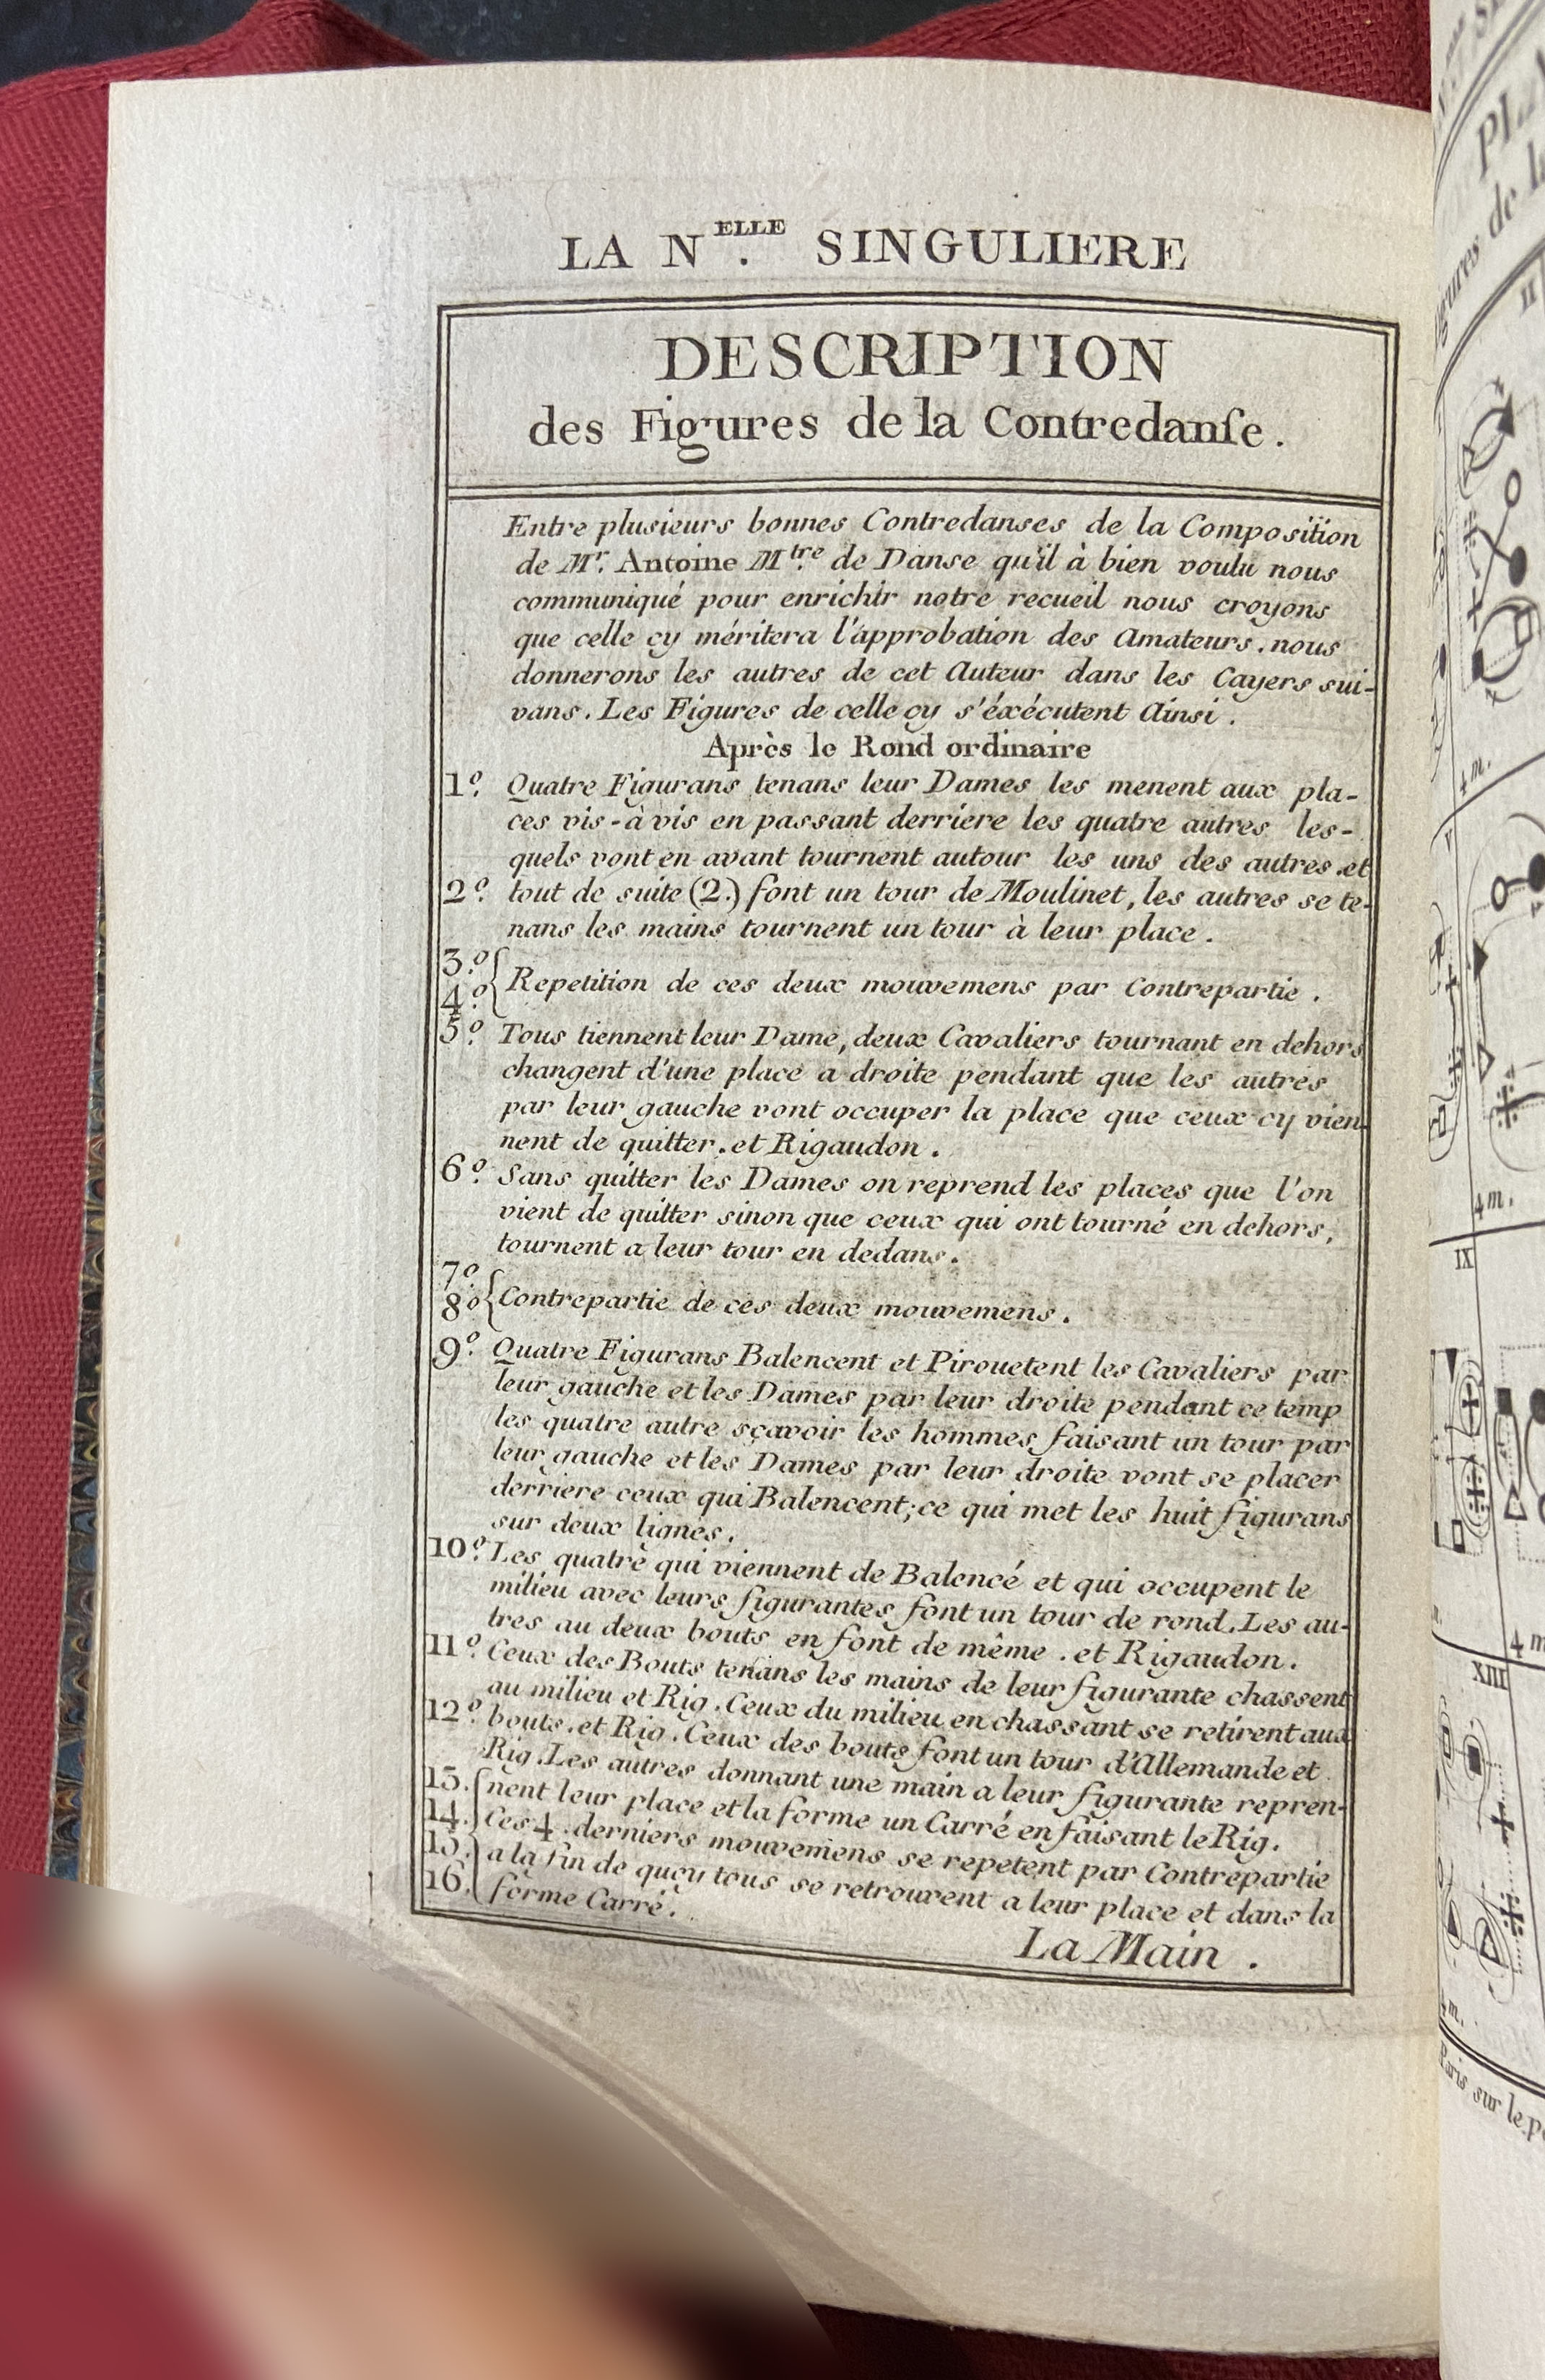 LA N.ELLE SINGULIERE
DESCRIPTION
des Figures de la Contredanſe.
Entre plusieurs bonnes Contredanses de la Composition
de Mr. Antoine Mtre. de Danse qu'il à bien voulu nous
communiqué pour enrichir notre recueil nous croyons
que celle cy méritera l'approbation des Amateurs. nous
donnerons les autres de cet Auteur dans les Cayers sui-
vans. Les Figures de celle cy s'éxécutent Ainsi.
Après le Rond ordinaire
1º. Quatre Figurans tenans leur Dames les menent aux pla-
ces vis-à vis en passant derriére les quatre autres les-
quels vont en avant tournent autour les uns des autres. et
2º. tout de suite (2.) font un tour de Moulinet, les autres se te-
nans les mains tournent un tour à leur place.
3.º
4.º { Repetition de ces deux mouvemens par Contrepartie.
5º. Tous tiennent leur Dame, deux Cavaliers tournant en dehors
changent d'une place a droite pendant que les autres
par leur gauche vont occuper la place que ceux cy vien-
nent de quitter. et Rigaudon.
6º. Sans quitter les Dames on reprend les places que l'on
vient de quitter sinon que ceux qui ont tourné en dehors,
tournent a leur tour en dedans.
7º.
8º { Contrepartie de ces deux mouvemens.
9º. Quatre Figurans Balencent et Pirouetent les Cavaliers par
leur gauche et les Dames par leur droite pendant ce temp
les quatre autre sçavoir les hommes faisant un tour par
leur gauche et les Dames par leur droite vont se placer
derriere ceux qui Balencent; ce qui met les huit figurans
sur deux lignes.
10º. Les quatre qui viennent de Balencé et qui occupent le
milieu avec leurs figurantes font un tour de rond. Les au-
tres au deux bouts en font de même. et Rigaudon.
11º. Ceux des Bouts tenans les mains de leur figurante chassent
au milieu et Rig. Ceux du milieu en chassant se retirent aux
12º. bouts. et Rig. Ceux des bouts font un tour d'Allemande et
Rig. Les autres donnant une main a leur figurante repren-
13. nent leur place et la forme un Carré en faisant le Rig.
14. Ces 4. derniers mouvemens se repetent par Contrepartie
15. a la fin de quoy tous se retrouvent a leur place et dans la
16. forme Carré.
La Main.
II
4 m.
V
4 m.
IX
4 m
XIII
4 m.
Paris sur le